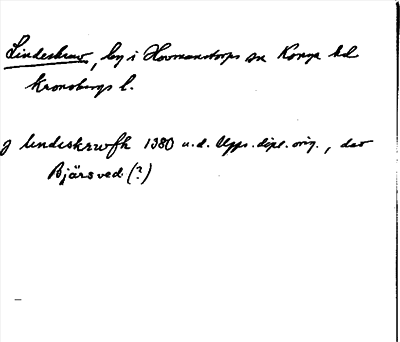 Lindeskruv, by i Hovmanstorps sn Konga hd
Kronobergs l.
J lindiskrwfh 1380 u.d. Upps. dipl. orig.,
Bjärsved (?)